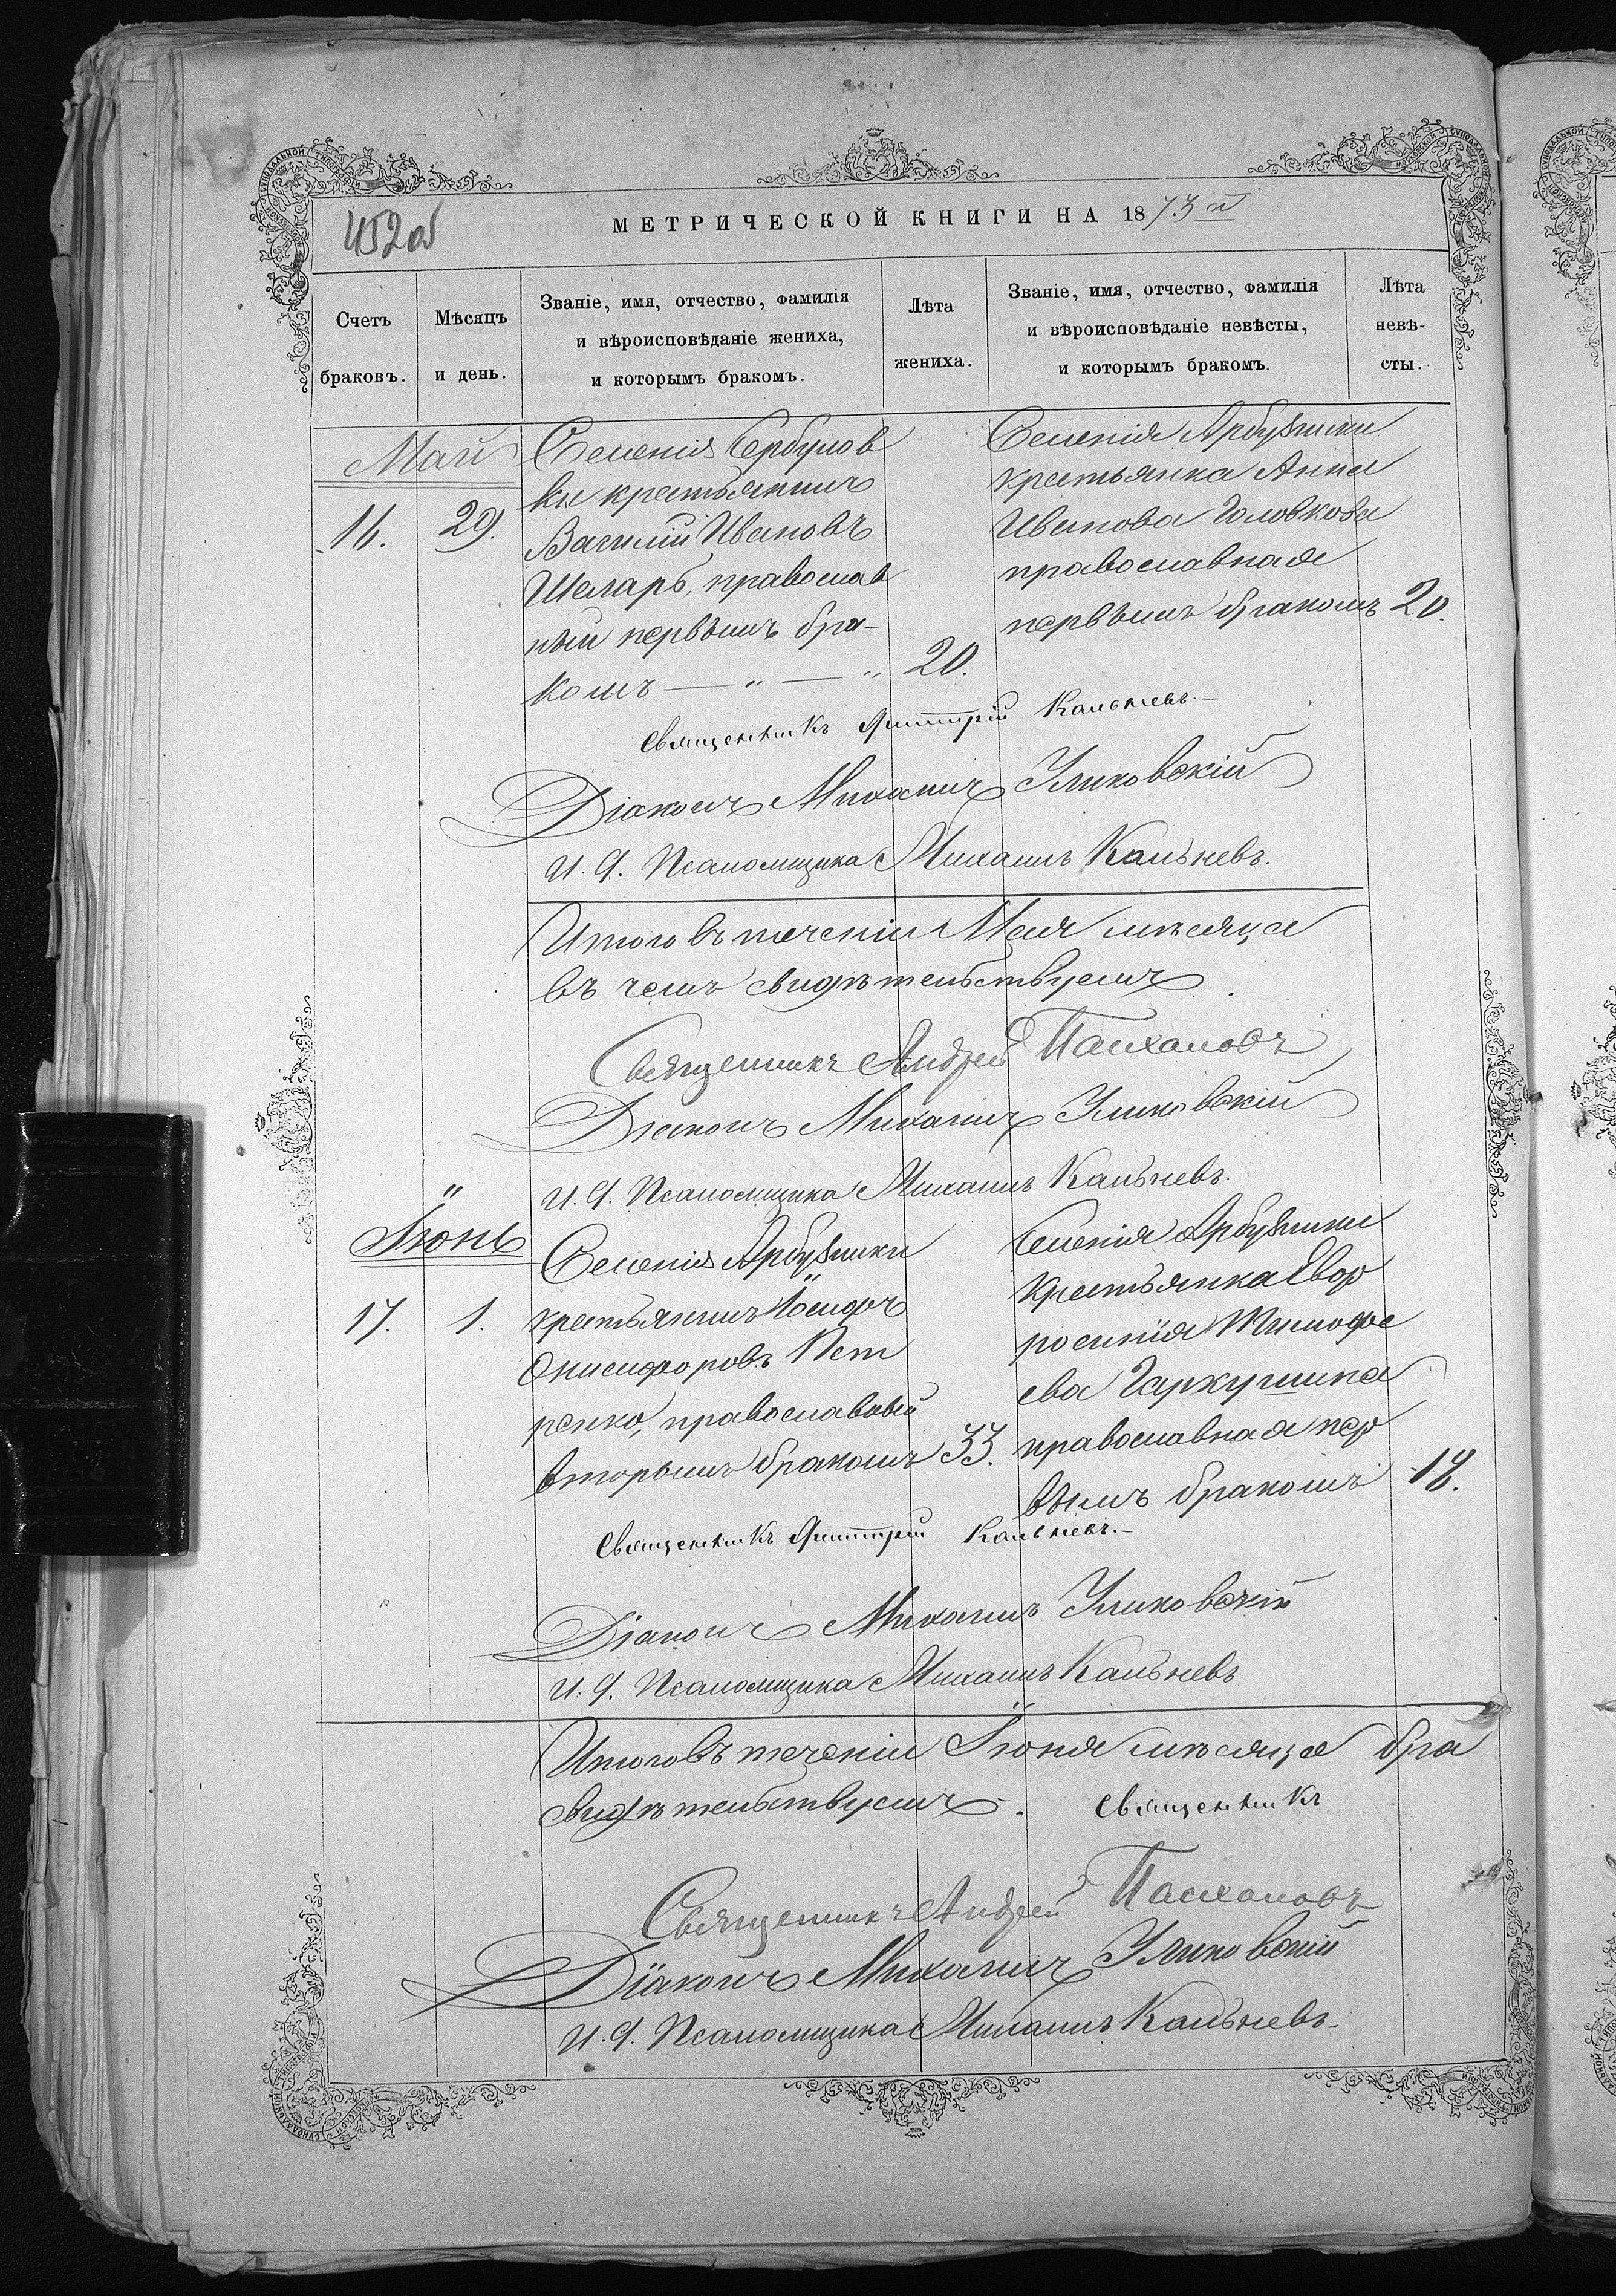 452об
МЕТРИЧЕСКОЙ КНИГИ НА 1873 й
Счетъ браковъ.
Мѣсяцъ и день.
Званіе, имя, отчество, фамилія и вѣроисповѣданіе жениха, и которымъ бракомъ.
Лѣта жениха.
Званіе, имя, отчество, фамилія и вѣроисповѣданіе невѣсты, и которымъ бракомъ.
Лѣта невѣ- сты.
Май
16.
29.
Селенія Сербулов
ки крестьянинъ
Василій Ивановъ
Шеларь, православ
ный первымъ бра-
комъ — „ — „
20.
Селенія Арбузинки
крестьянка Анна
Иванова Головкова
православная
первымъ бракомъ
20.
Священникъ Димитрій Кальневъ.—
Діаконъ Михаилъ Уликовскій
И. д. Псаломщика Михаилъ Кальневъ.
Итого въ теченіи Мая мѣсяца
въ чемъ свидѣтельствуемъ.
Священникъ Андрей
Діаконъ Михаилъ Уликовскій
И. д. Псаломщика Михаилъ Кальневъ.
"
Іюнь
17.
1.
Селенія Арбузинки
крестьянинъ Іосифъ
Онисифоровъ Пет
ренко, православный
вторымъ бракомъ
33.
Селенія Арбузинки
крестьянка Евфр
росинія Тимофе
ева Гаркушина
православная пер
вымъ бракомъ
18.
Священникъ Димитрій Кальневъ.—
Діаконъ Михаилъ Уликовскій
И. д. Псаломщика Михаилъ Кальневъ
Итого въ теченіи Іюня мѣсяца бра
свидѣтельствуемъ. Священникъ
Священникъ Андрей
Діаконъ Михаилъ Уликовскій
И. д. Псаломщика Михаилъ Кальневъ